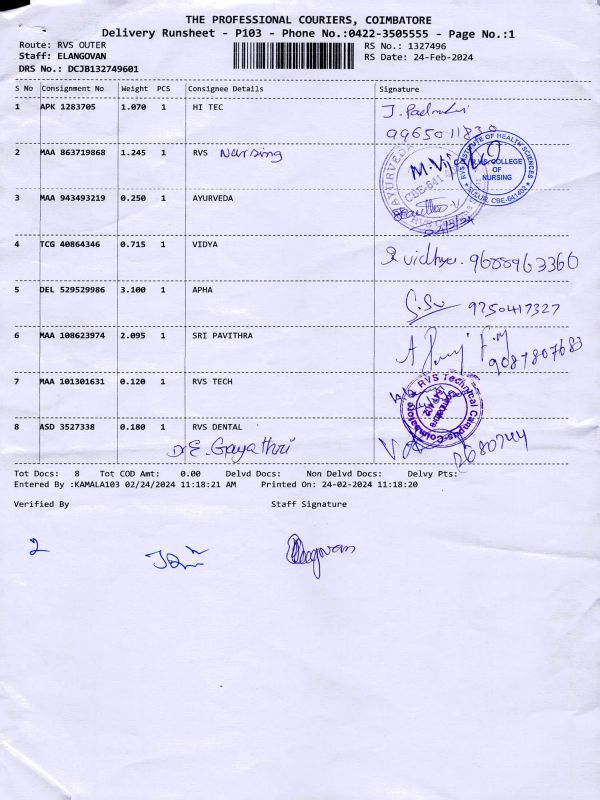 THE PROFESSIONAL COURIERS, COIMBATORE
Delivery Runsheet - P103 - Phone No.:0422-3505555 - Page No.:1
Route: RVS OUTER
RS No.: 1327496
Staff: ELANGOVAN
RS Date: 24-Feb-2024
DRS No.: DCJB132749601
S No Consignment No Weight PCS Consignee Details Signature
1 APK 1283705 1.070 1 HI TEC
2 MAA 863719868 1.245 1 RVS Nursing
3 MAA 943493219 0.250 1 AYURVEDA
4 TCG 40864346 0.715 1 VIDYA Vidhya. 9688963360
5 DEL 529529986 3.100 1 APHA 9750417327
6 MAA 108623974 2.095 1 SRI PAVITHRA 9087807683
7 MAA 101301631 0.120 1 RVS TECH
RVS Technical Campus-Coimbatore
8 ASD 3527338 0.180 1 RVS DENTAL
Dr E. Gayathri
Tot Docs: 8 Tot COD Amt: 0.00 Delvd Docs: Non Delvd Docs: Delvy Pts:
Entered By :KAMALA103 02/24/2024 11:18:21 AM Printed On: 24-02-2024 11:18:20
Verified By Staff Signature
2
Elangovan